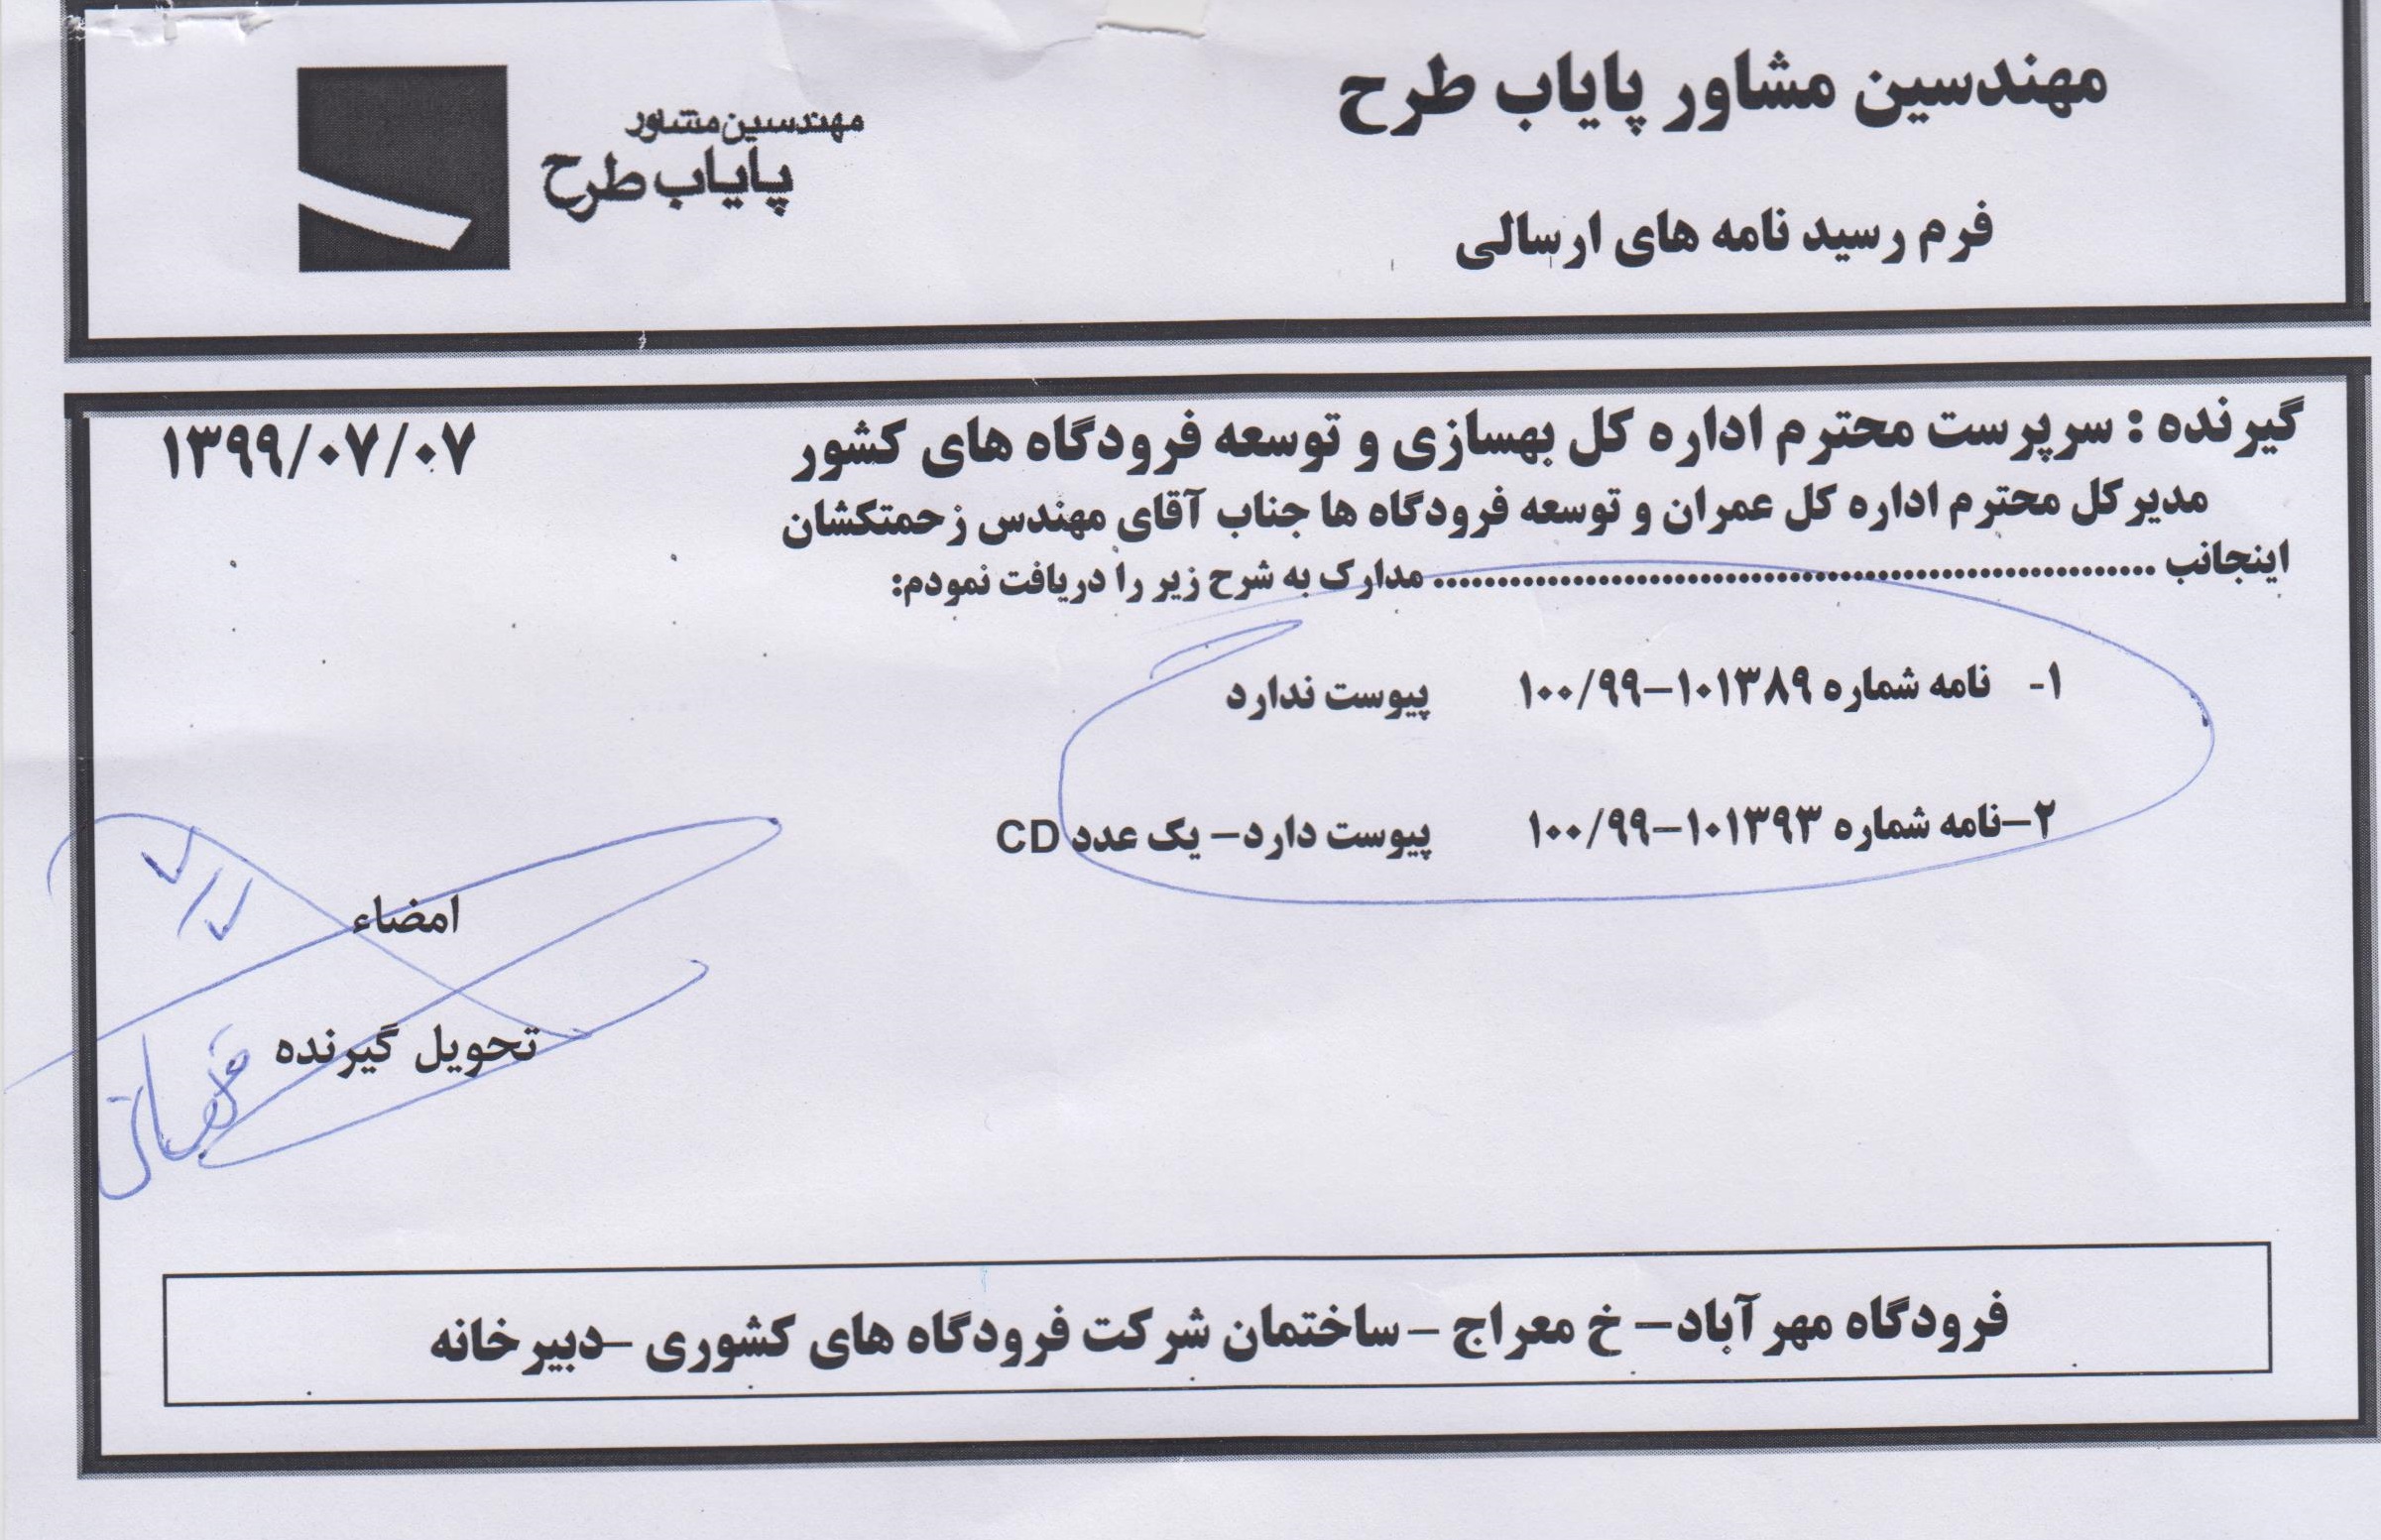 مهندسین مشاور پایاب طرح
مهندسین مشاور
پایاب طرح
فرم رسید نامه های ارسالی
گیرنده : سرپرست محترم اداره کل بهسازی و توسعه فرودگاه های کشور
۱۳۹۹/۰۷/۰۷
مدیر کل محترم اداره کل عمران و توسعه فرودگاه ها جناب آقای مهندس زحمتکشان
اینجانب ........................................................ مدارک به شرح زیر را دریافت نمودم:
۱- نامه شماره ۱۰۱۳۸۹-۱۰۰/۹۹ پیوست ندارد
۲-نامه شماره ۱۰۱۳۹۳-۱۰۰/۹۹ پیوست دارد- یک عدد CD
۷/۷
امضاء
تحویل گیرنده
فرودگاه مهر آباد- خ معراج - ساختمان شرکت فرودگاه های کشوری -دبیرخانه